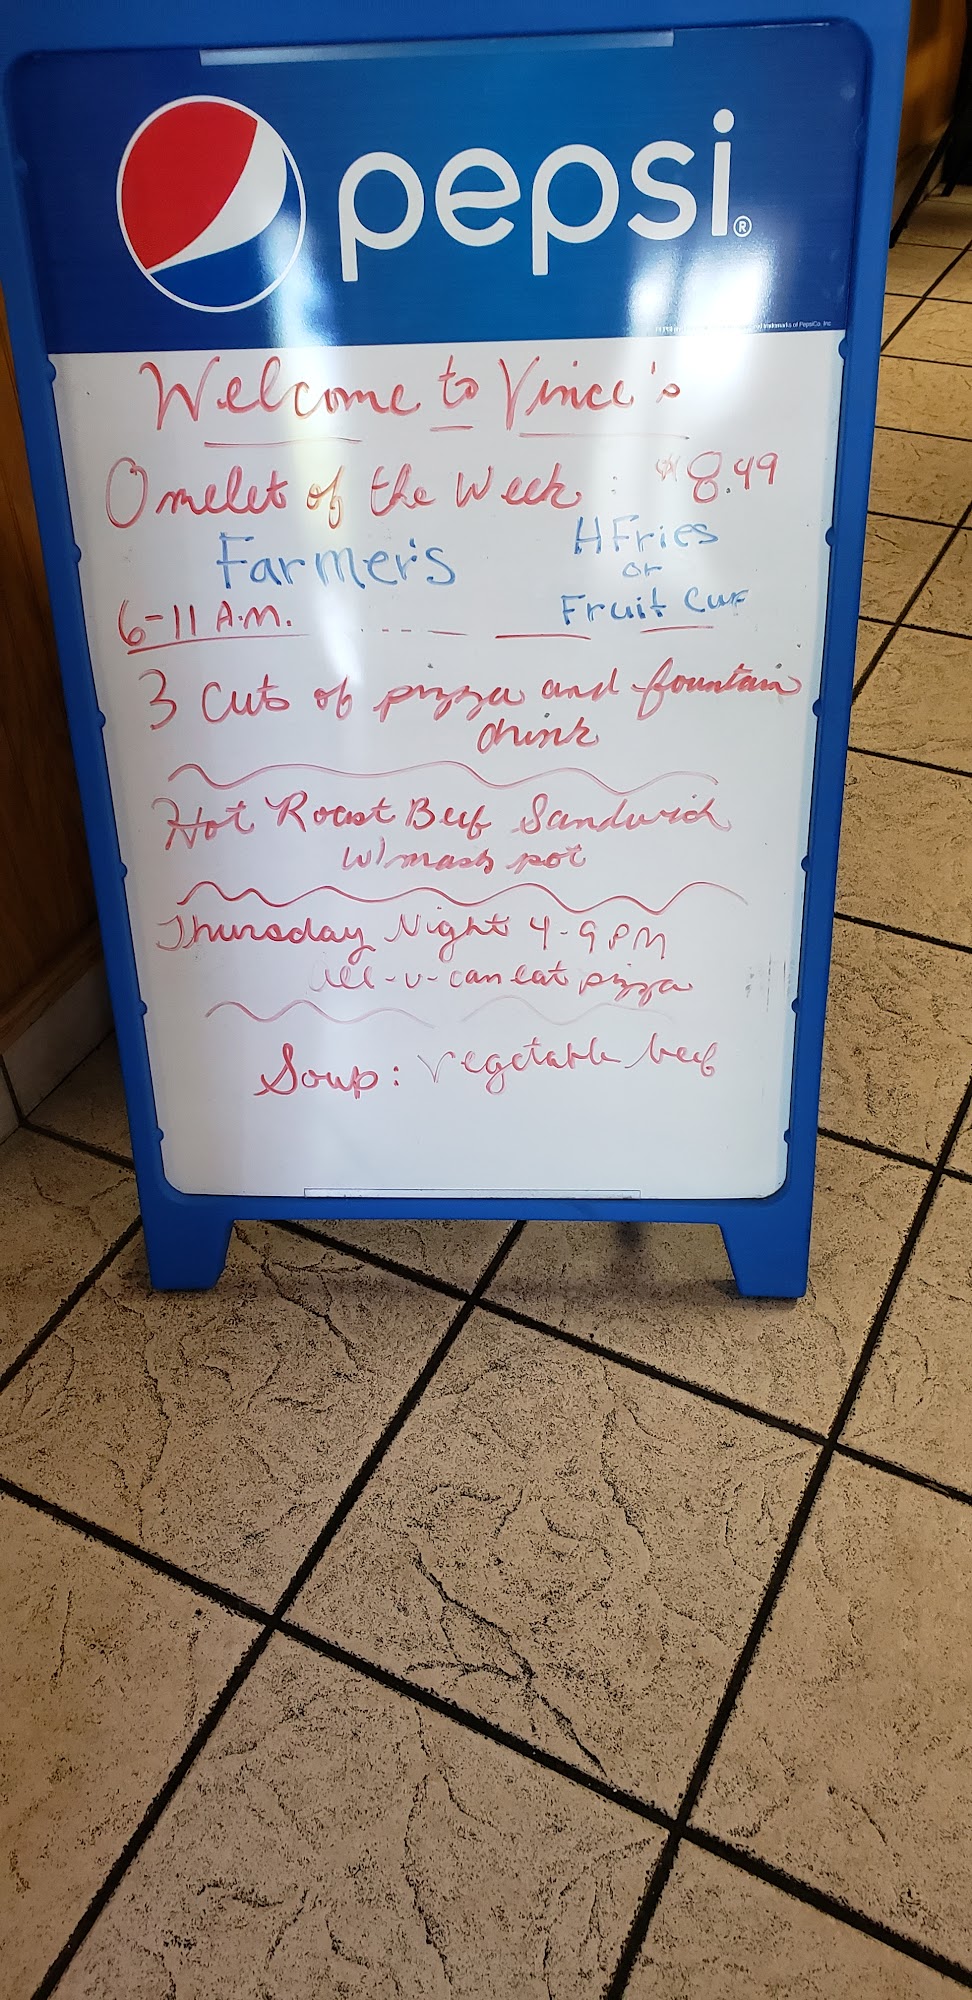 pepsi®
Welcome to Vince's
Omelet of the Week : $8.49
Farmer's
H Fries
or
Fruit Cup
6-11 A.M.
3 Cuts of pizza and fountain
drink
Hot Roast Beef Sandwich
w/mash pot
Thursday Night 4-9 PM
all-u-can eat pizza
Soup: Vegetable beef